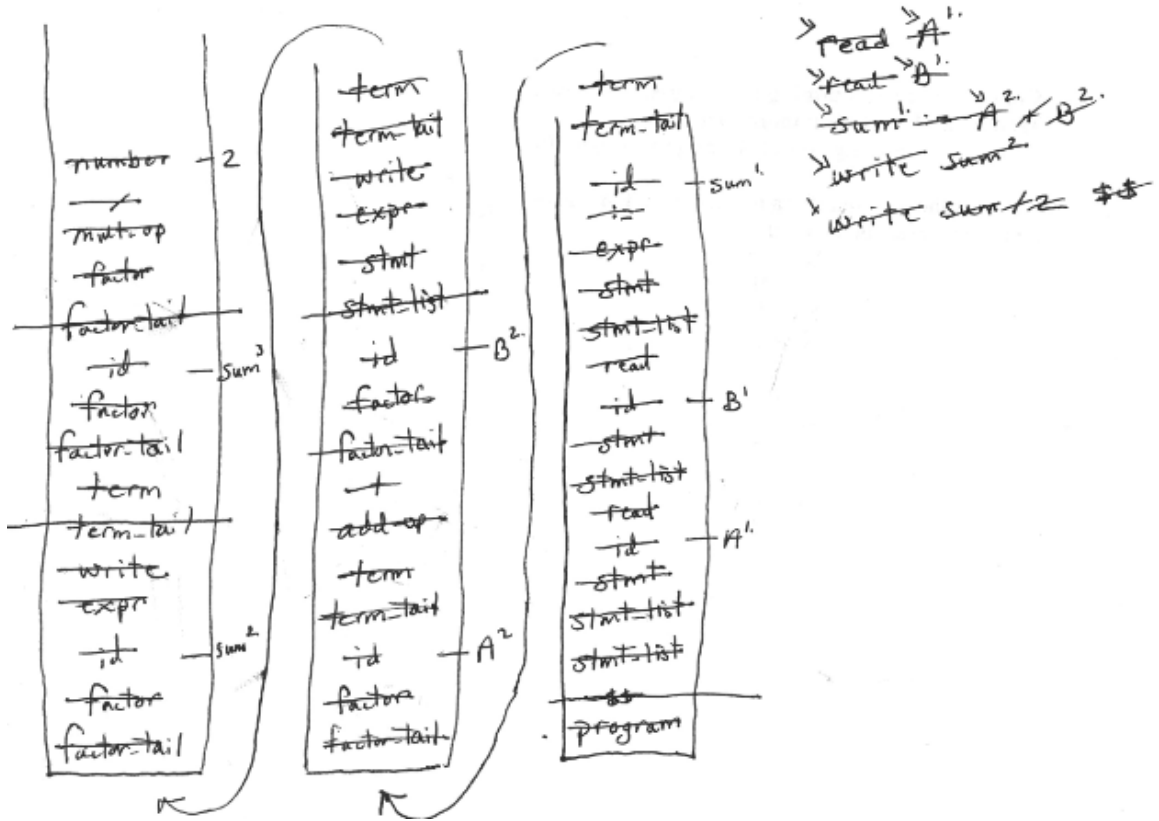 number 2
/
mult-op
factor
factor-tail
id sum³
factor
factor-tail
term
term-tail
write
expr
id sum²
factor
factor-tail
term
term-tail
write
expr
stmt
stmt-list
id B²
factor
factor-tail
+
add-op
term
term-tail
id A²
factor
factor-tail
term
term-tail
id sum¹
:=
expr
stmt
stmt-list
read
id B¹
stmt
stmt-list
read
id A¹
stmt
stmt-list
stmt-list
$$
program
read A¹
read B¹
sum¹ := A² + B²
write sum²
write sum / 2 $$